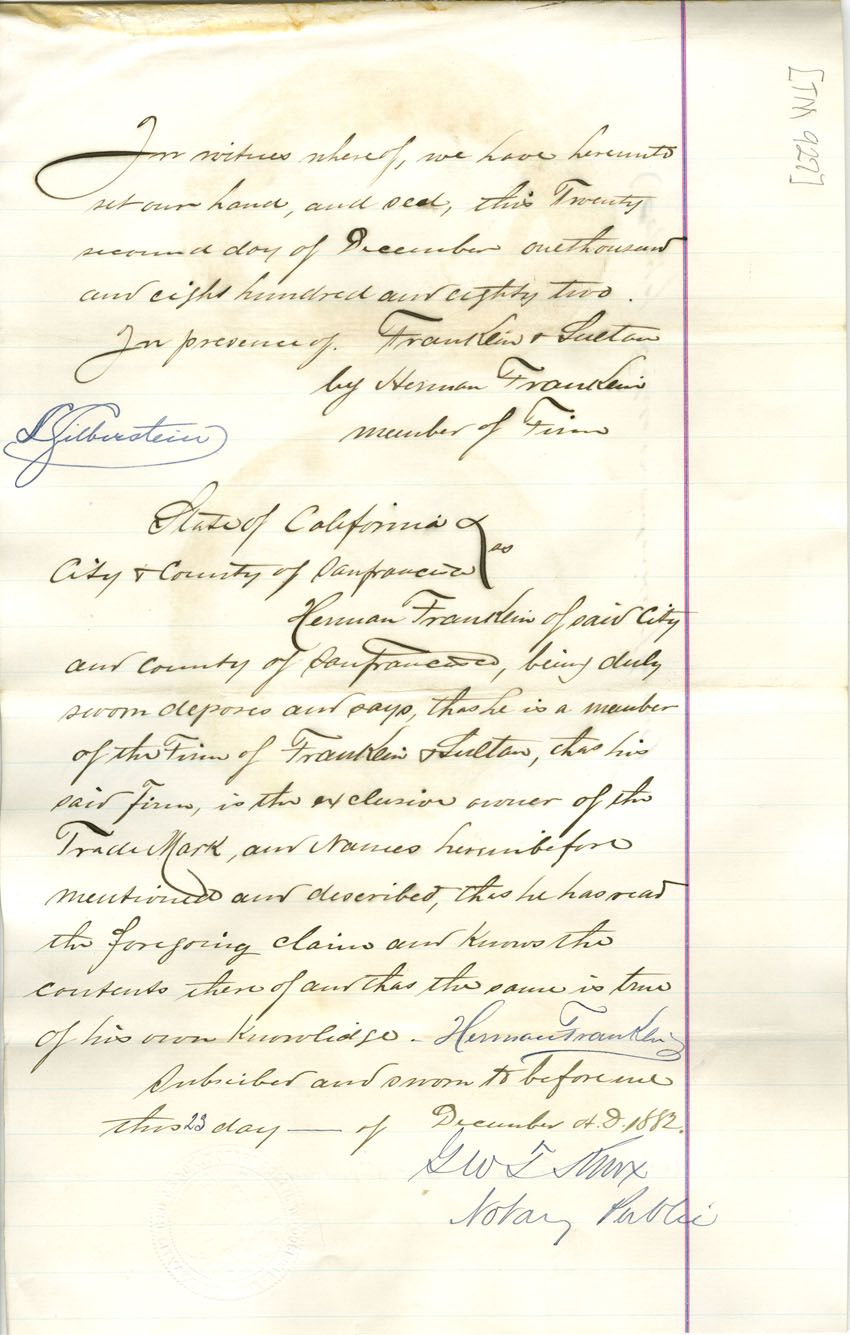 [TM 9227]
In witnes whereof, we have hereunto
set our hand, and seal, this Twenty
second day of December one thousand
and eight hundred and eighty two.
In presence of. Franklin & Sultan
by Herman Franklin
member of Firm
Silberstein
State of California
City & County of Sanfrancisco } ss
Herman Franklin of said City
and county of Sanfrancisco, being duly
sworn deposes and says, that he is a member
of the Firm of Franklin & Sultan, that his
said Firm, is the exclusive owner of the
Trade Mark, and Names hereinbefore
mentioned and described, that he has read
the foregoing claim and Knows the
contents there of and that the same is true
of his own Knowlidge. Herman Franklin
Subscibed and sworn to before me
this 23 day — of December A.D. 1882.
G W T Knox
Notary Public